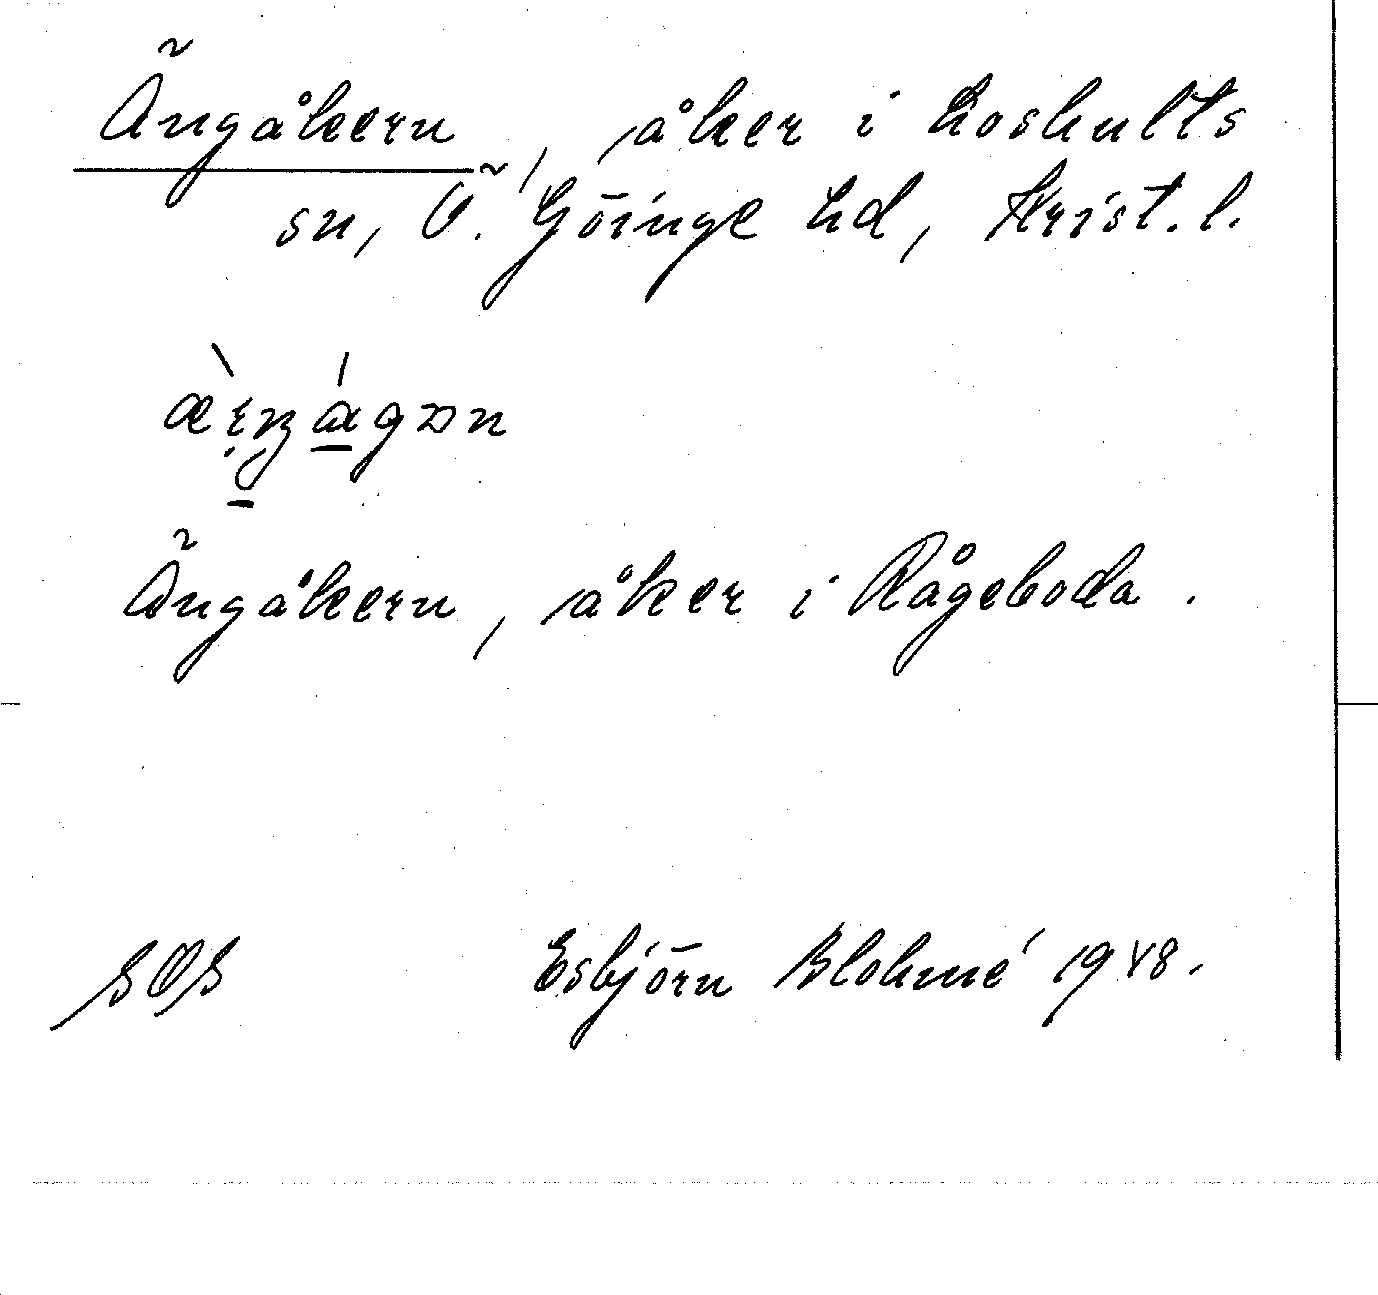 Ängåkern, åker i Loshults
sn, Ö. Göinge hd, Krist. l.
Ängåkern, åker i Rågeboda.
SOS Esbjörn Blohmé 1948.